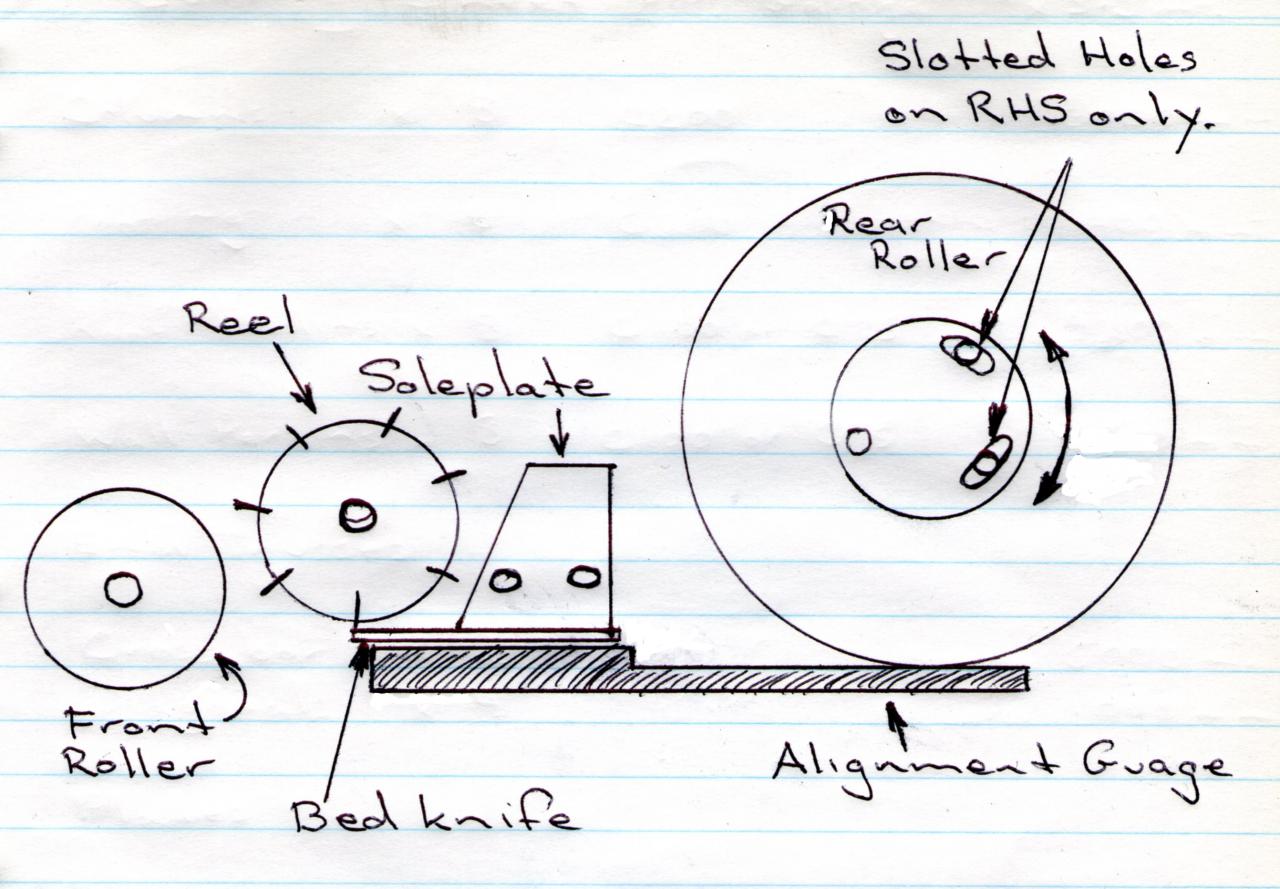 Slotted Holes
on RHS only.
Rear
Roller
Reel
Soleplate
Front
Roller
Alignment Guage
Bed knife